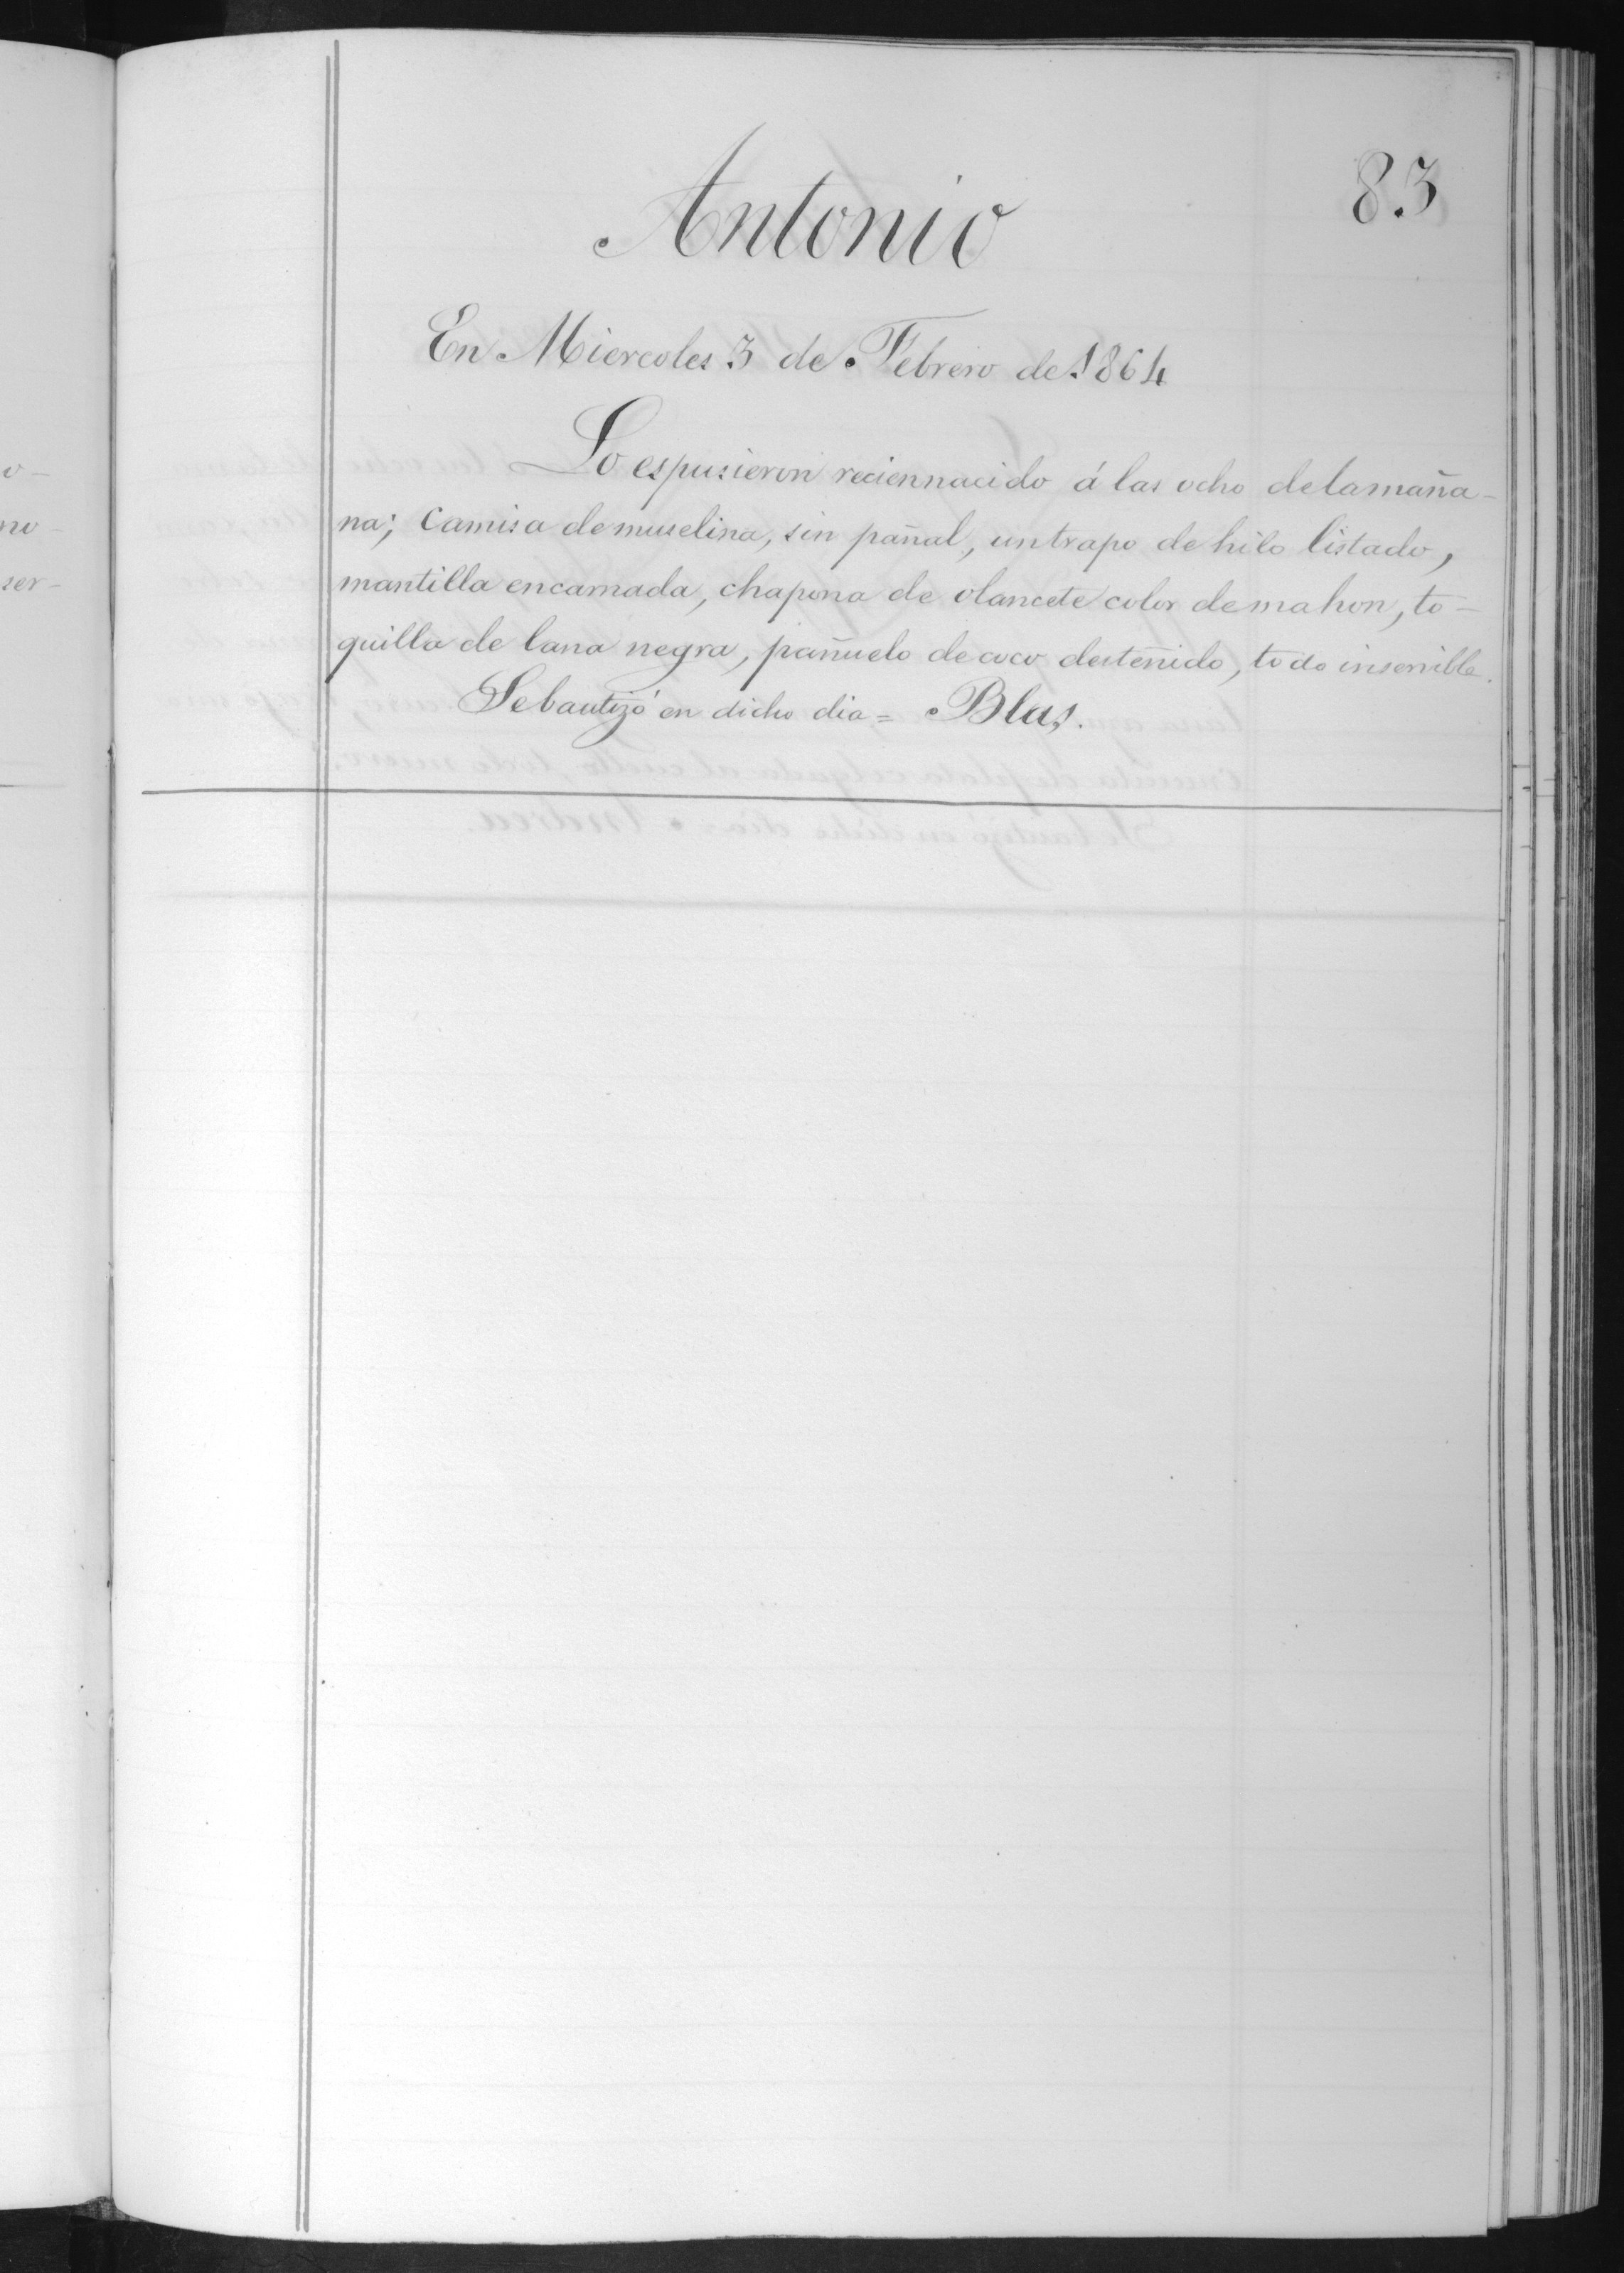 83
Antonio
En Miercoles 3 de Febrero de 1864
Lo espusieron reciennacido á las ocho de la maña-
na; camisa de muselina, sin pañal, un trapo de hilo listado,
mantilla encarnada, chapona de olancete color de mahon, to-
quilla de lana negra, pañuelo de coco desteñido, todo inservible.
Se bautizó en dicho dia = Blas.